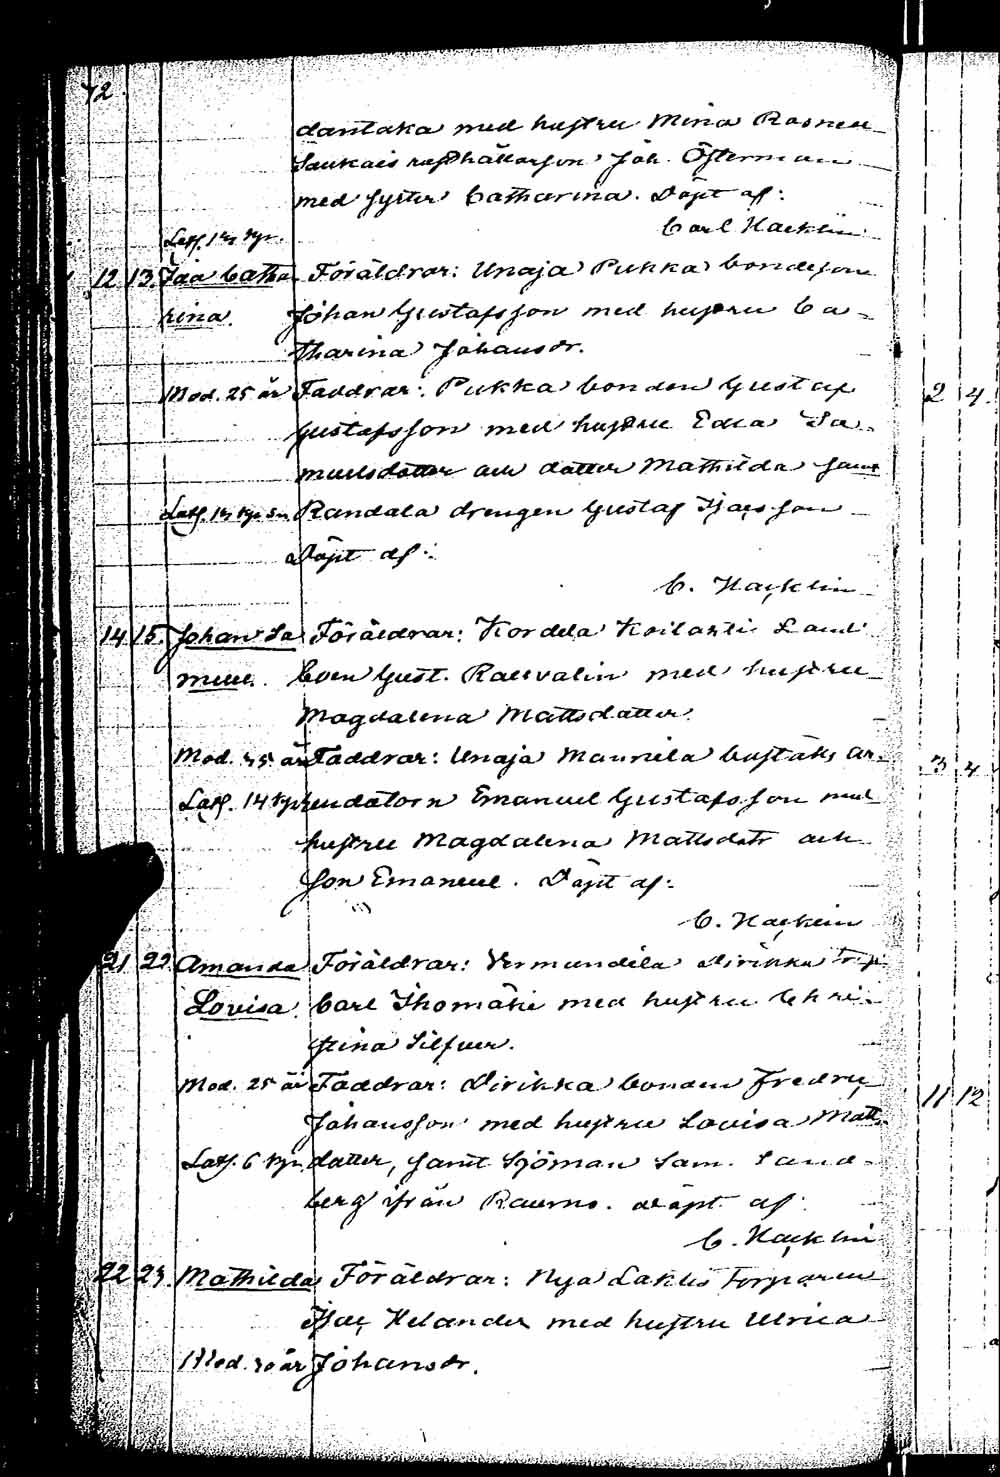 72.
dantaka med hustru Mina Rosnell
Saukais rusthållarson Joh. Österman
med syster Catharina. Döpt af:
Carl Hacklin
12 13. Ida Catha Föräldrar: Unaja Pukka bondeson
rina. Johan Gustafsson med hustru Ca-
tharina Johansdr.
Mod. 25 år Faddrar: Pukka bonden Gustaf
Gustafsson med hustru Edla Sa-
muelsdotter och dotter Mathilda samt
Randala drengen Gustaf Isacsson
Döpt af:
C. Hacklin
14 15. Johan Sa Föräldrar: Kordela Land
muel. boen Gust. Raesvalin med hustru
Magdalena Mattsdotter.
Mod. 35 år Faddrar: Unaja Mannila bustäls ar-
Latf. 14 kyr. rendatorn Emanuel Gustafsson med
hustru Magdalena Mattsdotr och
son Emanuel. Döpt af:
C. Hacklin
21 22. Amanda Föräldrar: Vermundila Dirikka Trp.
Lovisa. Carl Thomasse med hustru Chri-
stina Silfver.
Mod. 25 år Faddrar: Dirikka bonden Fredric
Johansson med hustru Lovisa Matts
Latf. 6 kyr. dotter, samt Sjöman Sam. Sand-
berg ifrån Raumo. Döpt af:
C. Hacklin
22 23. Mathilda Föräldrar: Nya Laklis Torparen
Isac Helander med hustru Ulrica
Mod. 30 år Johansdr.
2 4
3 4
11 12